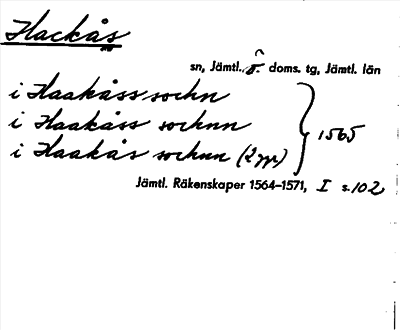 Hackås
sn, Jämtl. ö. doms. tg, Jämtl. län
i Haakåss sochn
i Haakåss sochnn
i Haakås sochnn (2 ggr) } 1565
Jämtl. Räkenskaper 1564-1571, I s. 102